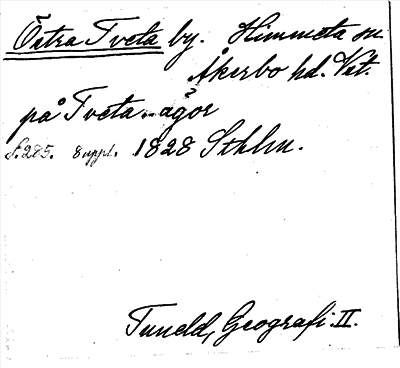 Östra Tveta by. Himmeta sn.
Åkerbo hd. Vst.
på Tveta-ägor
S.285. 8 uppl. 1828 Sthlm.
Tuneld, Geografi. II.